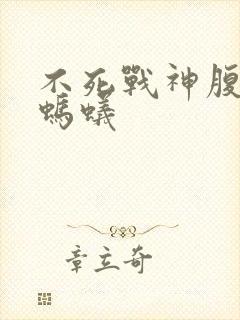 不死戰神腹
螞蟻
章立奇